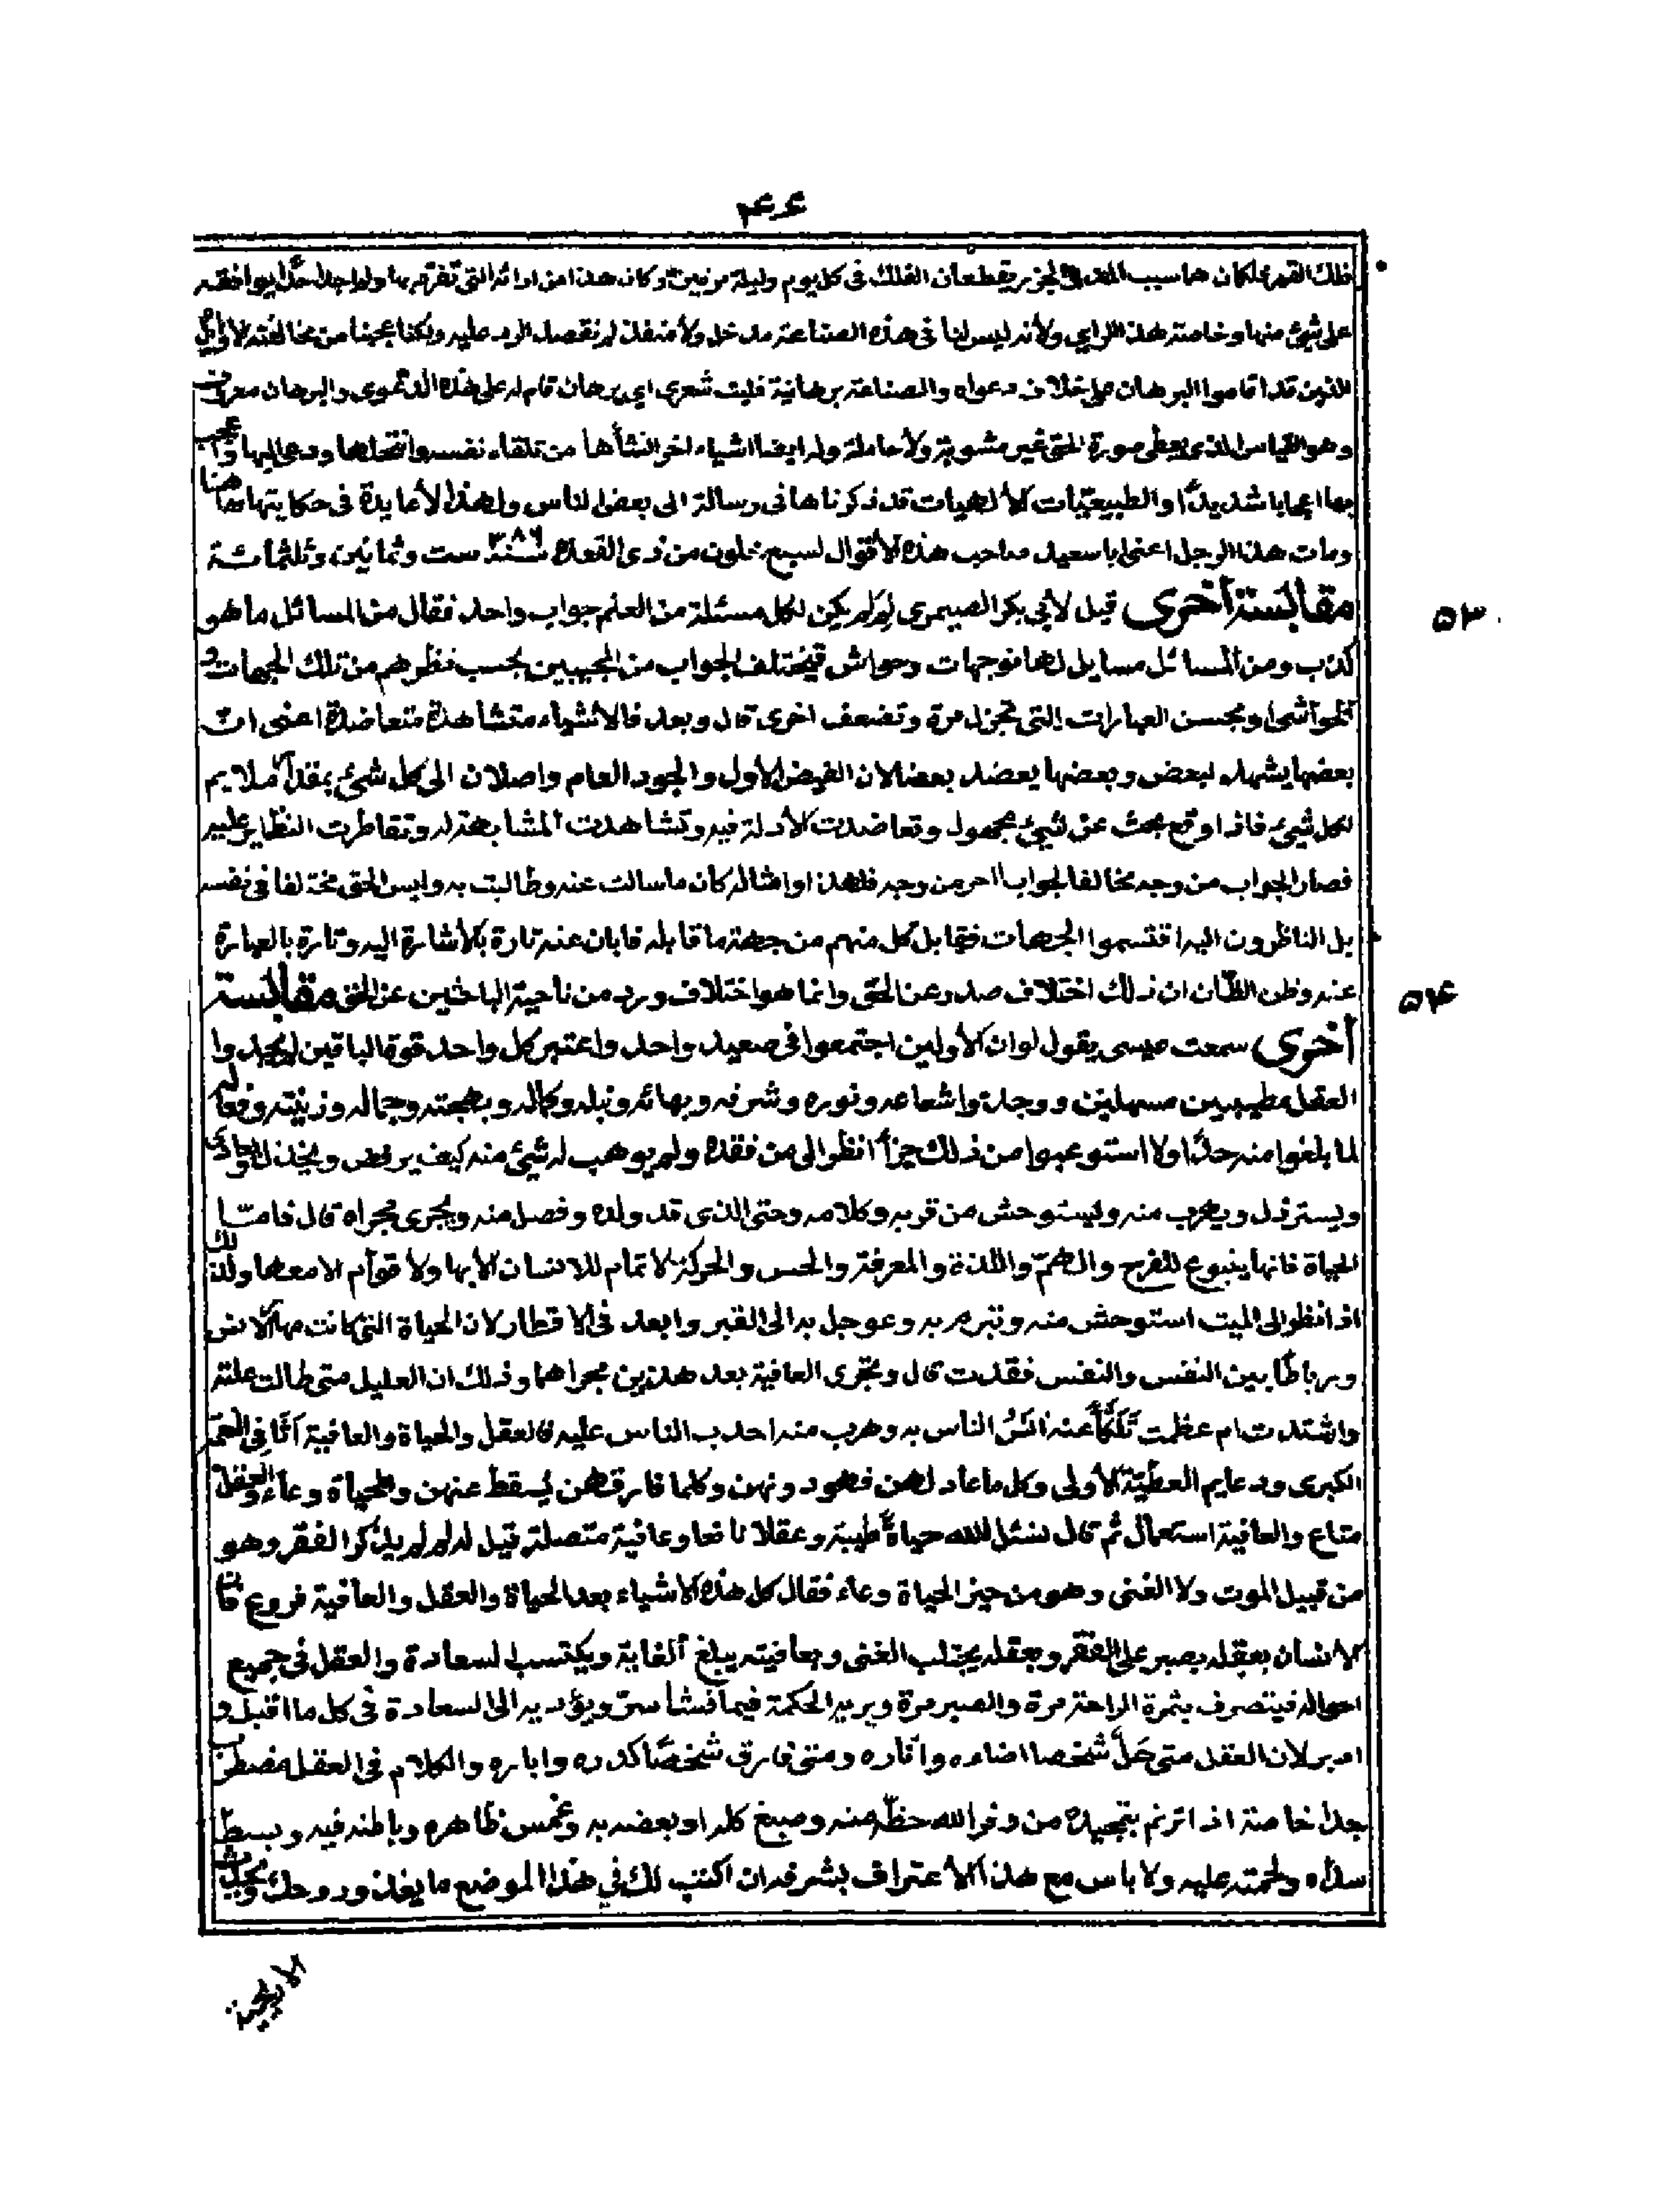 ٤٤
فلك القمر علكان هما سبب المد والجزر يقطعان الفلك فى كل يوم وليلة مرتين وكان هذا من ارائه التى تفرد بها ولم اجد احدا يوافقه
على شيئ منها وخاصة هذا الراى ولأنه ليس لنا فى هذه الصناعة مدخل ولا منفذ لم نقصد الرد عليه ولكنا عجبنا من مخالفته لاوايل
الذين قد اقاموا البرهان على خلاف دعواه والصناعة برهانية فليت شعرى اى برهان قام له على هذه الدعوى والبرهان معروف
وهو القياس الذى يعطى صورة الحق غير مشوبة ولا حاملة وله ايضا اشياء اخر انشأها من تلقاء نفسه وانتحلها ودعى اليها واعجب
بها اعجابا شديدًا والطبيعيّات الالهيات قد ذكرناها فى رسالة الى بعض الناس ولهذا لا فايدة فى حكايتها هاهنا
ومات هذا الرجل اعنى ابا سعيد صاحب هذه الاقوال لسبع خلون من ذى القعدة سنة ٣٨٦ ست وثمانين وثلثمائة
٥٣
مقابسة أخرى قيل لأبى بكر الصيمرى لم لم يكن لكل مسئلة من العلم جواب واحد فقال من المسائل ما هو
كذب ومن المسائل مسايل لها موجهات وحواش فيختلف الجواب من المجيبين بحسب نظرهم من تلك الجهات و
الحواشى وبحسن العبارات التى تجزل مرة وتضعف اخرى قال وبعد فالأشياء متشاهدة متعاضدة اعنى ان
بعضها يشهد لبعض وبعضها يعضد بعضا لان الفيض الأول والجود العام واصلان الى كل شيئ بمقدار ملايم
لكل شيئ فاذا وقع بحث عن شيئ مجهول وتعاضدت الأدلة فيه وتشاهدت المشابهة له وتقاطرت النظاير عليه
فصار الجواب من وجه مخالفا لجواب اخر من وجه فلهذا وامثاله كان ما سالت عنه وطالبت به وليس الحق مختلفا فى نفسه
بل الناظرون اليه اقتسموا الجهات فقابل كل منهم من جهة ما قابله فابان عنه تارة بالأشارة اليه وتارة بالعبارة
٥٤
عنه وظن الظّان ان ذلك اختلاف صدر عن الحق وانما هو اختلاف ورد من ناحية الباحثين عن الحق مقابسة
أخرى سمعت عيسى يقول لو ان الأولين اجتمعوا فى صعيد واحد واعتبر كل واحد قوة الباقين لم يجدوا
العقل مطيبين مسهلين ووجدوا شعاعه ونوره وشرفه وبهائه ونبله وكماله وبهجته وجماله وزينته وفعله
لما بلغوا منه حدًا ولا استوعبوا من ذلك جزأ انظر الى من فقده ولم يوهب له شيئ منه كيف يرفض ويخذل ويعادى
ويسترذل ويهرب منه ويستوحش من قربه وكلامه وحتى الذى قد ولده وفصل منه ويجرى مجراه قال فاما
الحياة فانها ينبوع للفرح والهمّ واللذة والمعرفة والحس والحركة لا تمام للانسان الا بها ولا قوام الا معها ولذلك
اذا نظر الى الميت استوحش منه وتبرم به وعوجل به الى القبر وابعد فى الاقطار لان الحياة التى كانت مهد الانس
ورباطًا بين النفس والنفس فقدت قال وتجرى العافية بعد هذين مجراهما وذلك ان العليل متى طالت علته
واشتدت ام عظمت تَلَكَّأَ عنه اَنَسُ الناس به وهرب منه احدب الناس عليه فالعقل والحياة والعافية اثافى النعمة
الكبرى ودعايم العطيّة الأولى وكل ما عاد لهن فهو دونهن وكلما فارقهن يُسقط عنهن والحياة وعاء والعقل
متاع والعافية استعمال ثم قال لنسئل الله حياة طيبة وعقلا نافعا وعافية متصلة قيل له لم لم يذكر الفقر وهو
من قبيل الموت ولا الغنى وهو من حيز الحياة وعاء فقال كل هذه الاشياء بعد الحياة والعقل والعافية فروع فان
الانسان بعقله يصبر على الفقر وبعقله يجتلب الغنى وبعافيته يبلغ الغاية ويكتسب السعادة والعقل فى جميع
احواله فيتصرف بثمرة الراحة مرة والصبر مرة ويريه الحكمة فيما فشا سره ويؤديه الى السعادة فى كل ما اقبل و
ادبر لان العقل متى حَلَّ شخصا اضاءه وآثاره ومتى فارق شخصًا كدره واباره والكلام فى العقل مضطرب
جدا خاصة اذا ترنم بتمجيده من وفر الله حظّه منه وصبغ كله او بعضه به وغمس ظاهره وباطنه فيه وبسط
سداه ولحمته عليه ولا باس مع هذا الاعتراف بشرفه ان اكتب لك فى هذا الموضع ما يغذو روحك ويجلب